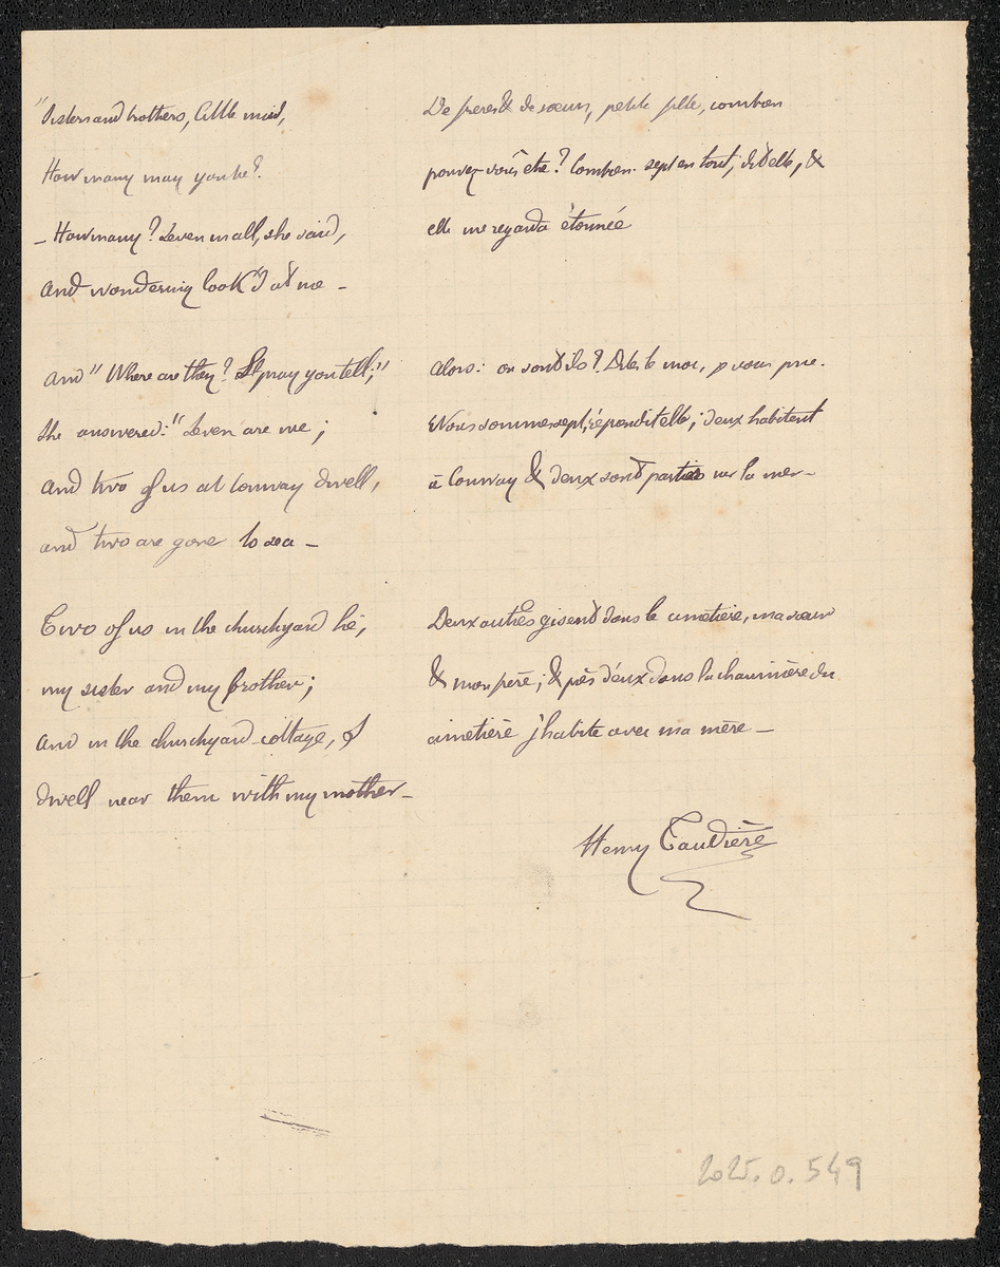 "Sisters and brothers, little maid,
How many may you be?
- How many? Seven in all, she said,
and wondering look'd at me -
and "Where are they? I pray you tell;"
She answered: "Seven are we;
and two of us at Conway dwell,
and two are gone to sea -
Two of us in the churchyard lie,
my sister and my brother;
and in the churchyard cottage, I
dwell near them with my mother -
De freres & de sœurs, petite fille, combien
pouvez-vous être? Combien. sept en tout, dit elle, &
elle me regarda étonnée
Alors: ou sont ils? Dites le moi, je vous prie.
Nous sommes sept, répondit elle; deux habitent
à Conway & deux sont partis sur la mer -
Deux autres gisent dans le cimetière, ma sœur
& mon père; & près d'eux dans la chaumière du
cimetière j'habite avec ma mère -
Henry Taudière
2025.0.549